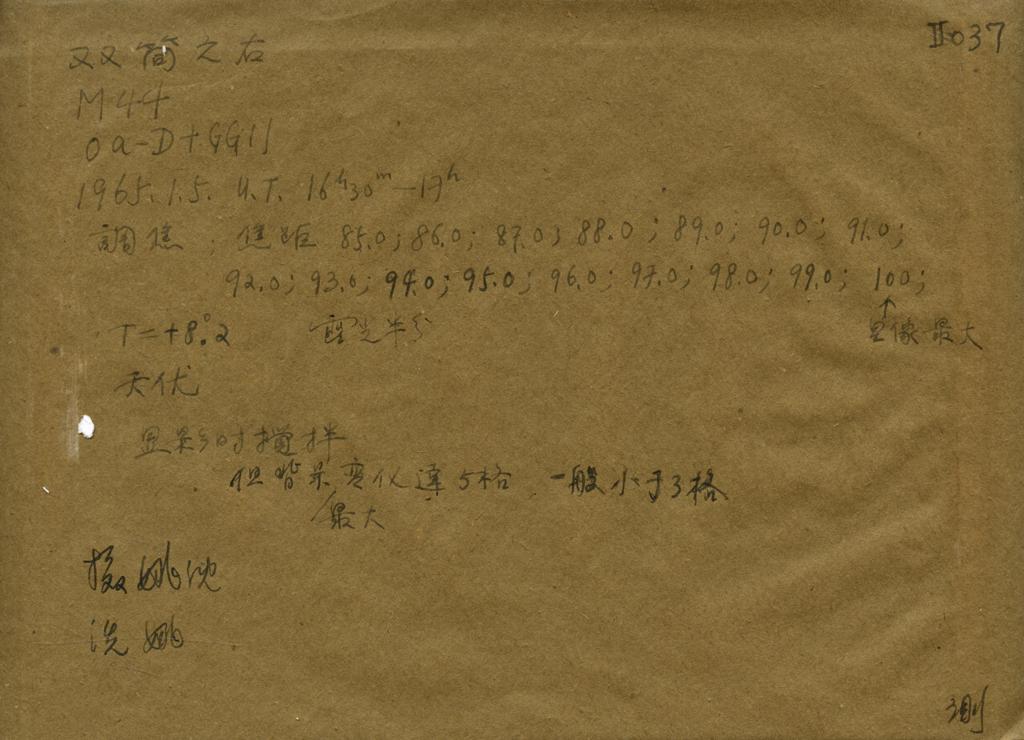 II037
双筒之右
M44
Oa-D+GG11
1965.1.5. U.T. 16ʰ30ᵐ-17ʰ
調焦; 焦距 85.0; 86.0; 87.0; 88.0; 89.0; 90.0; 91.0;
92.0; 93.0; 94.0; 95.0; 96.0; 97.0; 98.0; 99.0; 100;
↑
T=+8.°2 露光半分 星像最大
天伏
显影时搅拌
但背景变化達5格 一般小于3格
最大
摄姚沈
洗姚
測